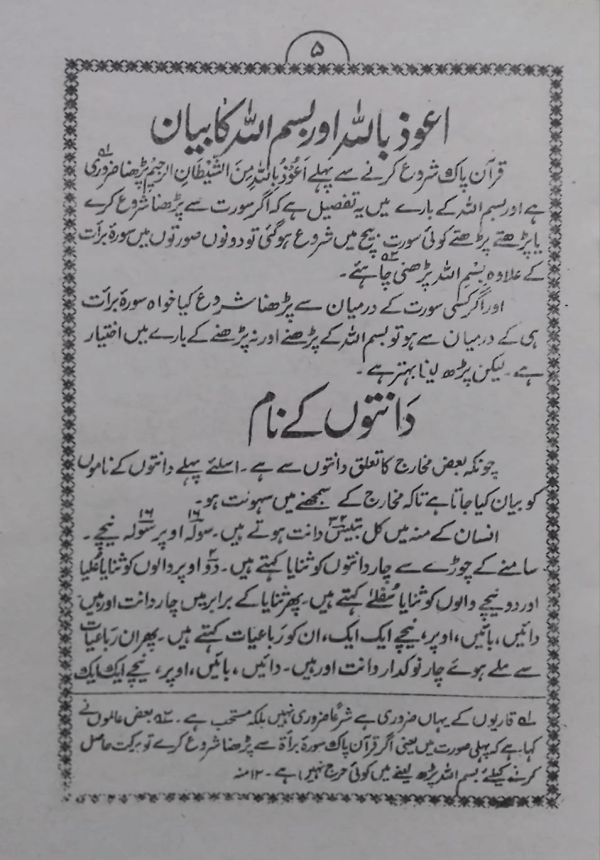 ۵
اعوذ باللہ اور بسم اللہ کا بیان
قرآن پاک شروع کرنے سے پہلے اَعُوْذُ بِاللّٰہِ مِنَ الشَّیْطَانِ الرَّجِیْمِ پڑھنا ضروری لہ
ہے اور بسم اللہ کے بارے میں یہ تفصیل ہے کہ اگر سورت سے پڑھنا شروع کرے
یا پڑھتے پڑھتے کوئی سورت بیچ میں شروع ہو گئی تو دونوں صورتوں میں سورۂ برأت
کے علاوہ بِسْمِ اللہ پڑھنی چاہئے ۔
اور اگر کسی سورت کے درمیان سے پڑھنا شروع کیا خواہ سورۂ برأت
ہی کے درمیان سے ہو تو بسم اللہ کے پڑھنے اور نہ پڑھنے کے بارے میں اختیار
ہے ۔ لیکن پڑھ لینا بہتر ہے ۔
دَانتوں کے نام
چونکہ بعض مخارج کا تعلق دانتوں سے ہے ۔ اسلئے پہلے دانتوں کے ناموں
کو بیان کیا جاتا ہے تاکہ مخارج کے سمجھنے میں سہولت ہو ۔
انسان کے منہ میں کل بتیس ۳۲ دانت ہوتے ہیں ۔ سولہ ۱۶ اوپر سولہ ۱۶ نیچے ۔
سامنے کے چوڑے سے چار دانتوں کو ثنایا کہتے ہیں ۔ دو ۲ اوپر والوں کو ثنایا عُلیا
اور دو نیچے والوں کو ثنایا سُفلیٰ کہتے ہیں ۔ پھر ثنایا کے برابر میں چار دانت اور ہیں
دائیں ، بائیں ، اوپر ، نیچے ایک ایک ، ان کو رَباعیات کہتے ہیں ۔ پھر ان رباعیات
سے ملے ہوئے چار نوکدار دانت اور ہیں ۔ دائیں ، بائیں ، اوپر ، نیچے ایک ایک
لہ قاریوں کے یہاں ضروری ہے شرعًا ضروری نہیں بلکہ مستحب ہے ۔ ۲ہ بعض عالموں نے
کہا ہے کہ پہلی صورت میں یعنی اگر قرآن پاک سورۂ برأۃ سے پڑھنا شروع کرے تو برکت حاصل
کرنے کیلئے بسم اللہ پڑھ لینے میں کوئی حرج نہیں ہے ۔ ۱۲ منہ